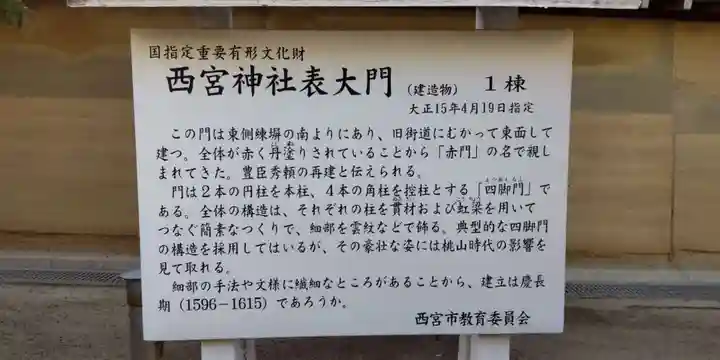 国指定重要有形文化財
西宮神社表大門 (建造物) 1棟
大正15年4月19日指定
この門は東側練塀の南よりにあり、旧街道にむかって東面して
建つ。全体が赤く丹塗りされていることから「赤門」の名で親し
まれてきた。豊臣秀頼の再建と伝えられる。
門は2本の円柱を本柱、4本の角柱を控柱とする「四脚門」で
ある。全体の構造は、それぞれの柱を貫材および虹梁を用いて
つなぐ簡素なつくりで、細部を雲紋などで飾る。典型的な四脚門
の構造を採用してはいるが、その豪壮な姿には桃山時代の影響を
見て取れる。
細部の手法や文様に繊細なところがあることから、建立は慶長
期(1596-1615)であろうか。
西宮市教育委員会